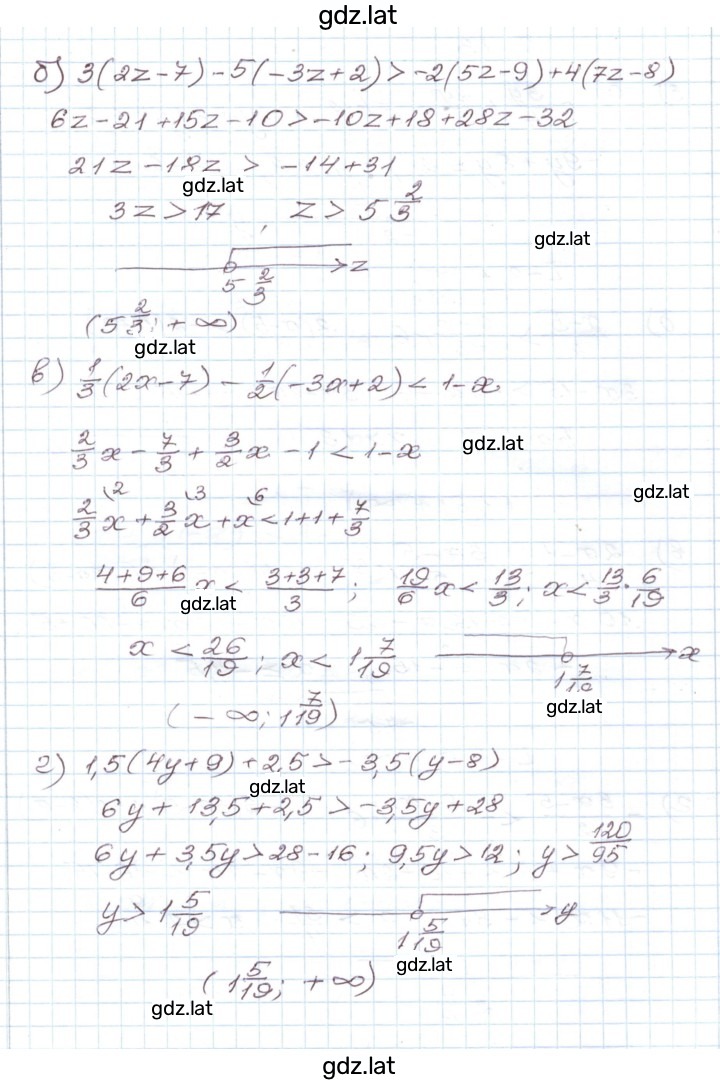 gdz.lat
б) 3(2z-7)-5(-3z+2)>-2(5z-9)+4(7z-8)
6z-21+15z-10>-10z+18+28z-32
21z-18z > -14+31
gdz.lat
3z>17, z> 5 2/3
gdz.lat
z
5 2/3
(5 2/3; +∞)
gdz.lat
в) 1/3(2x-7) - 1/2(-3x+2)< 1-x
2/3 x - 7/3 + 3/2 x - 1 < 1-x
gdz.lat
gdz.lat
2/3 \2 x + 3/2 \3 x + x \6 < 1+1+ 7/3
(4+9+6)/6 x < (3+3+7)/3; 19/6 x < 13/3; x < 13/3 · 6/19
gdz.lat
x < 26/19; x < 1 7/19
x
1 7/19
gdz.lat
(-∞; 1 7/19)
г) 1,5(4y+9)+2,5>-3,5(y-8)
gdz.lat
6y+13,5+2,5>-3,5y+28
6y+3,5y>28-16; 9,5y>12; y> 120/95
y> 1 5/19
y
1 5/19
gdz.lat
(1 5/19; +∞)
gdz.lat
gdz.lat